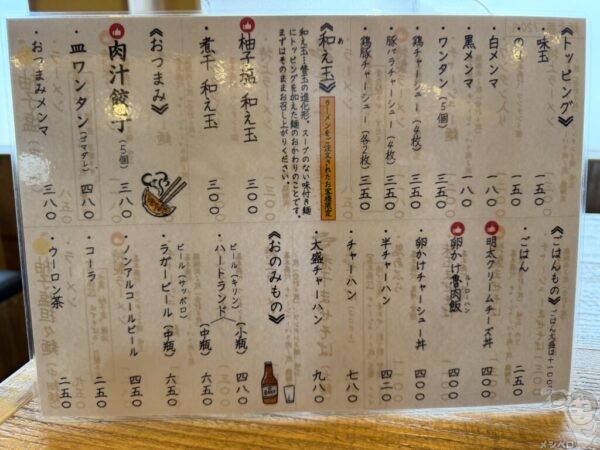 《トッピング》
・味玉 一五〇
・のり 一五〇
・白メンマ 一八〇
・黒メンマ 一八〇
・ワンタン（5個） 三五〇
・鶏チャーシュー（4枚） 三五〇
・豚バラチャーシュー（4枚） 三五〇
・鶏豚チャーシュー（各2枚） 三五〇
《和え玉》
あ
ラーメンをご注文されたお客様限定
和え玉…替玉の進化形。スープのない味付き麺
にトッピングを加えた麺のおかわりのことです。
まずはそのままお召し上がりください。
・柚子塩 和え玉 三〇〇
・煮干 和え玉 三〇〇
《おつまみ》
・肉汁餃子（5個） 三八〇
・皿ワンタン（ゴマダレ） 四八〇
・おつまみメンマ 三八〇
《ごはんもの》ごはん大盛は+100
・ごはん 二五〇
・明太クリームチーズ丼 四五〇
・卵かけ魯肉飯 四五〇
ルーローハン
・卵かけチャーシュー丼 四五〇
・半チャーハン 四二〇
・チャーハン 七八〇
・大盛チャーハン 九八〇
《おのみもの》
・ビール（キリン）
ハートランド
（小瓶） 四八〇
（中瓶） 六五〇
・ビール（サッポロ）
ラガービール（中瓶） 六五〇
・ノンアルコールビール 四五〇
・コーラ 二五〇
・ウーロン茶 二五〇
BEER
メシペロ